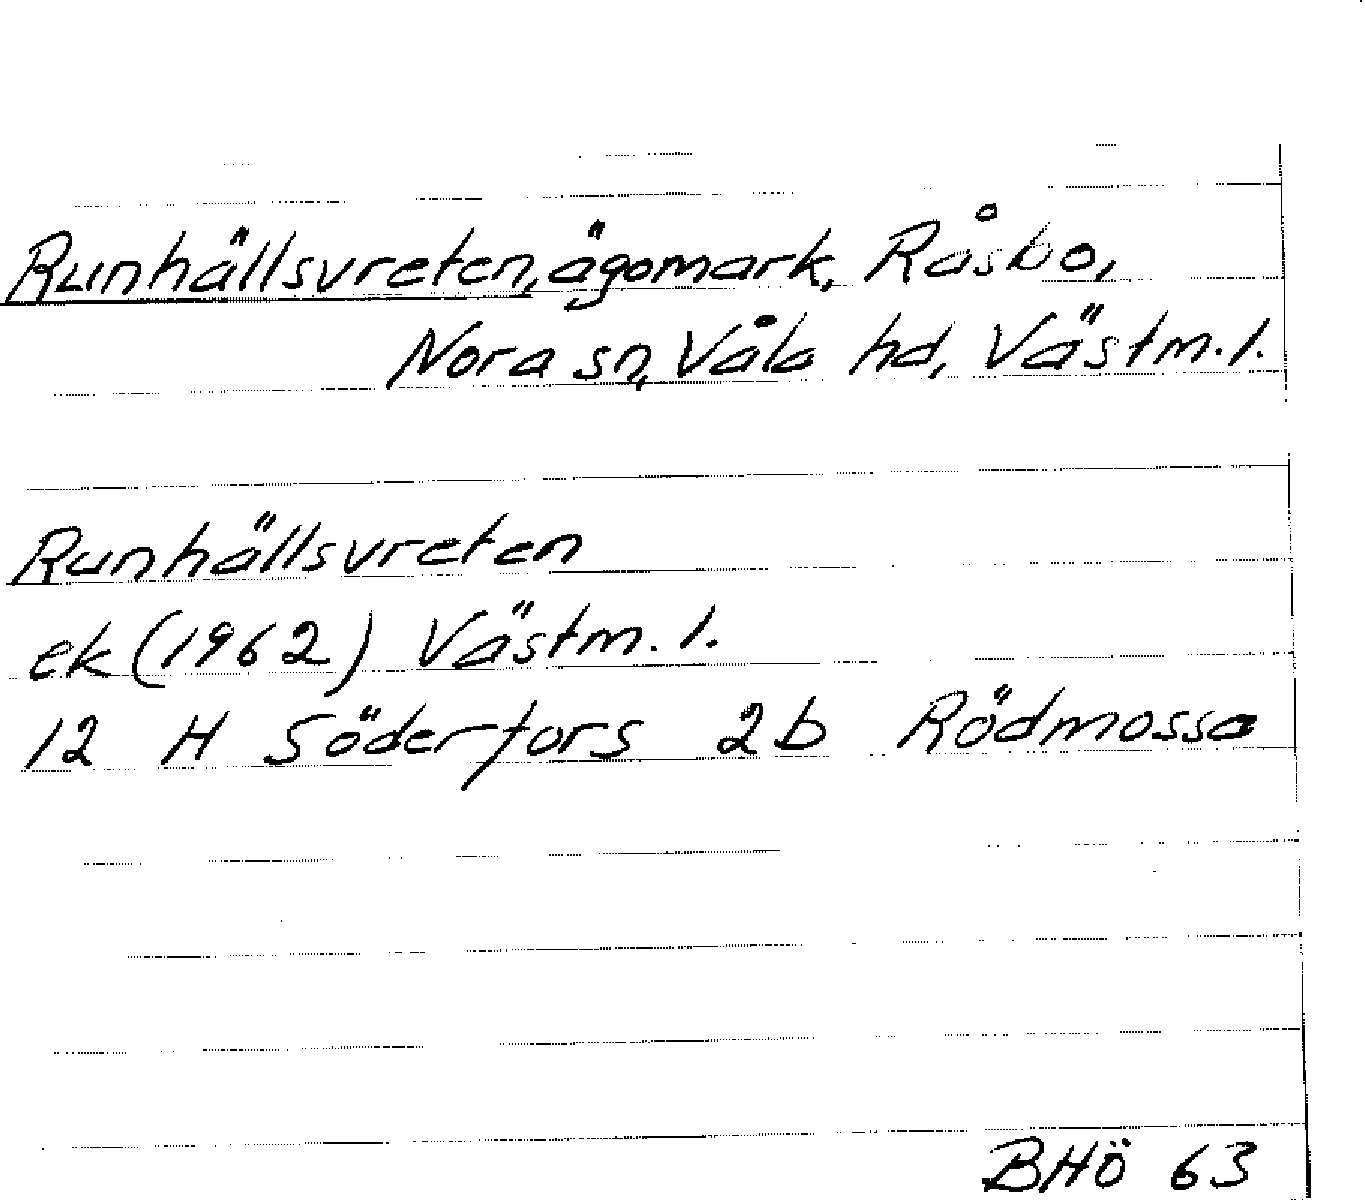 Runhällsvreten, ägomark, Råsbo,
Nora sn, Våla hd, Västm. l.
Runhällsvreten
ek (1962) Västm. l.
12 H Söderfors 2b Rödmossa
BHÖ 63